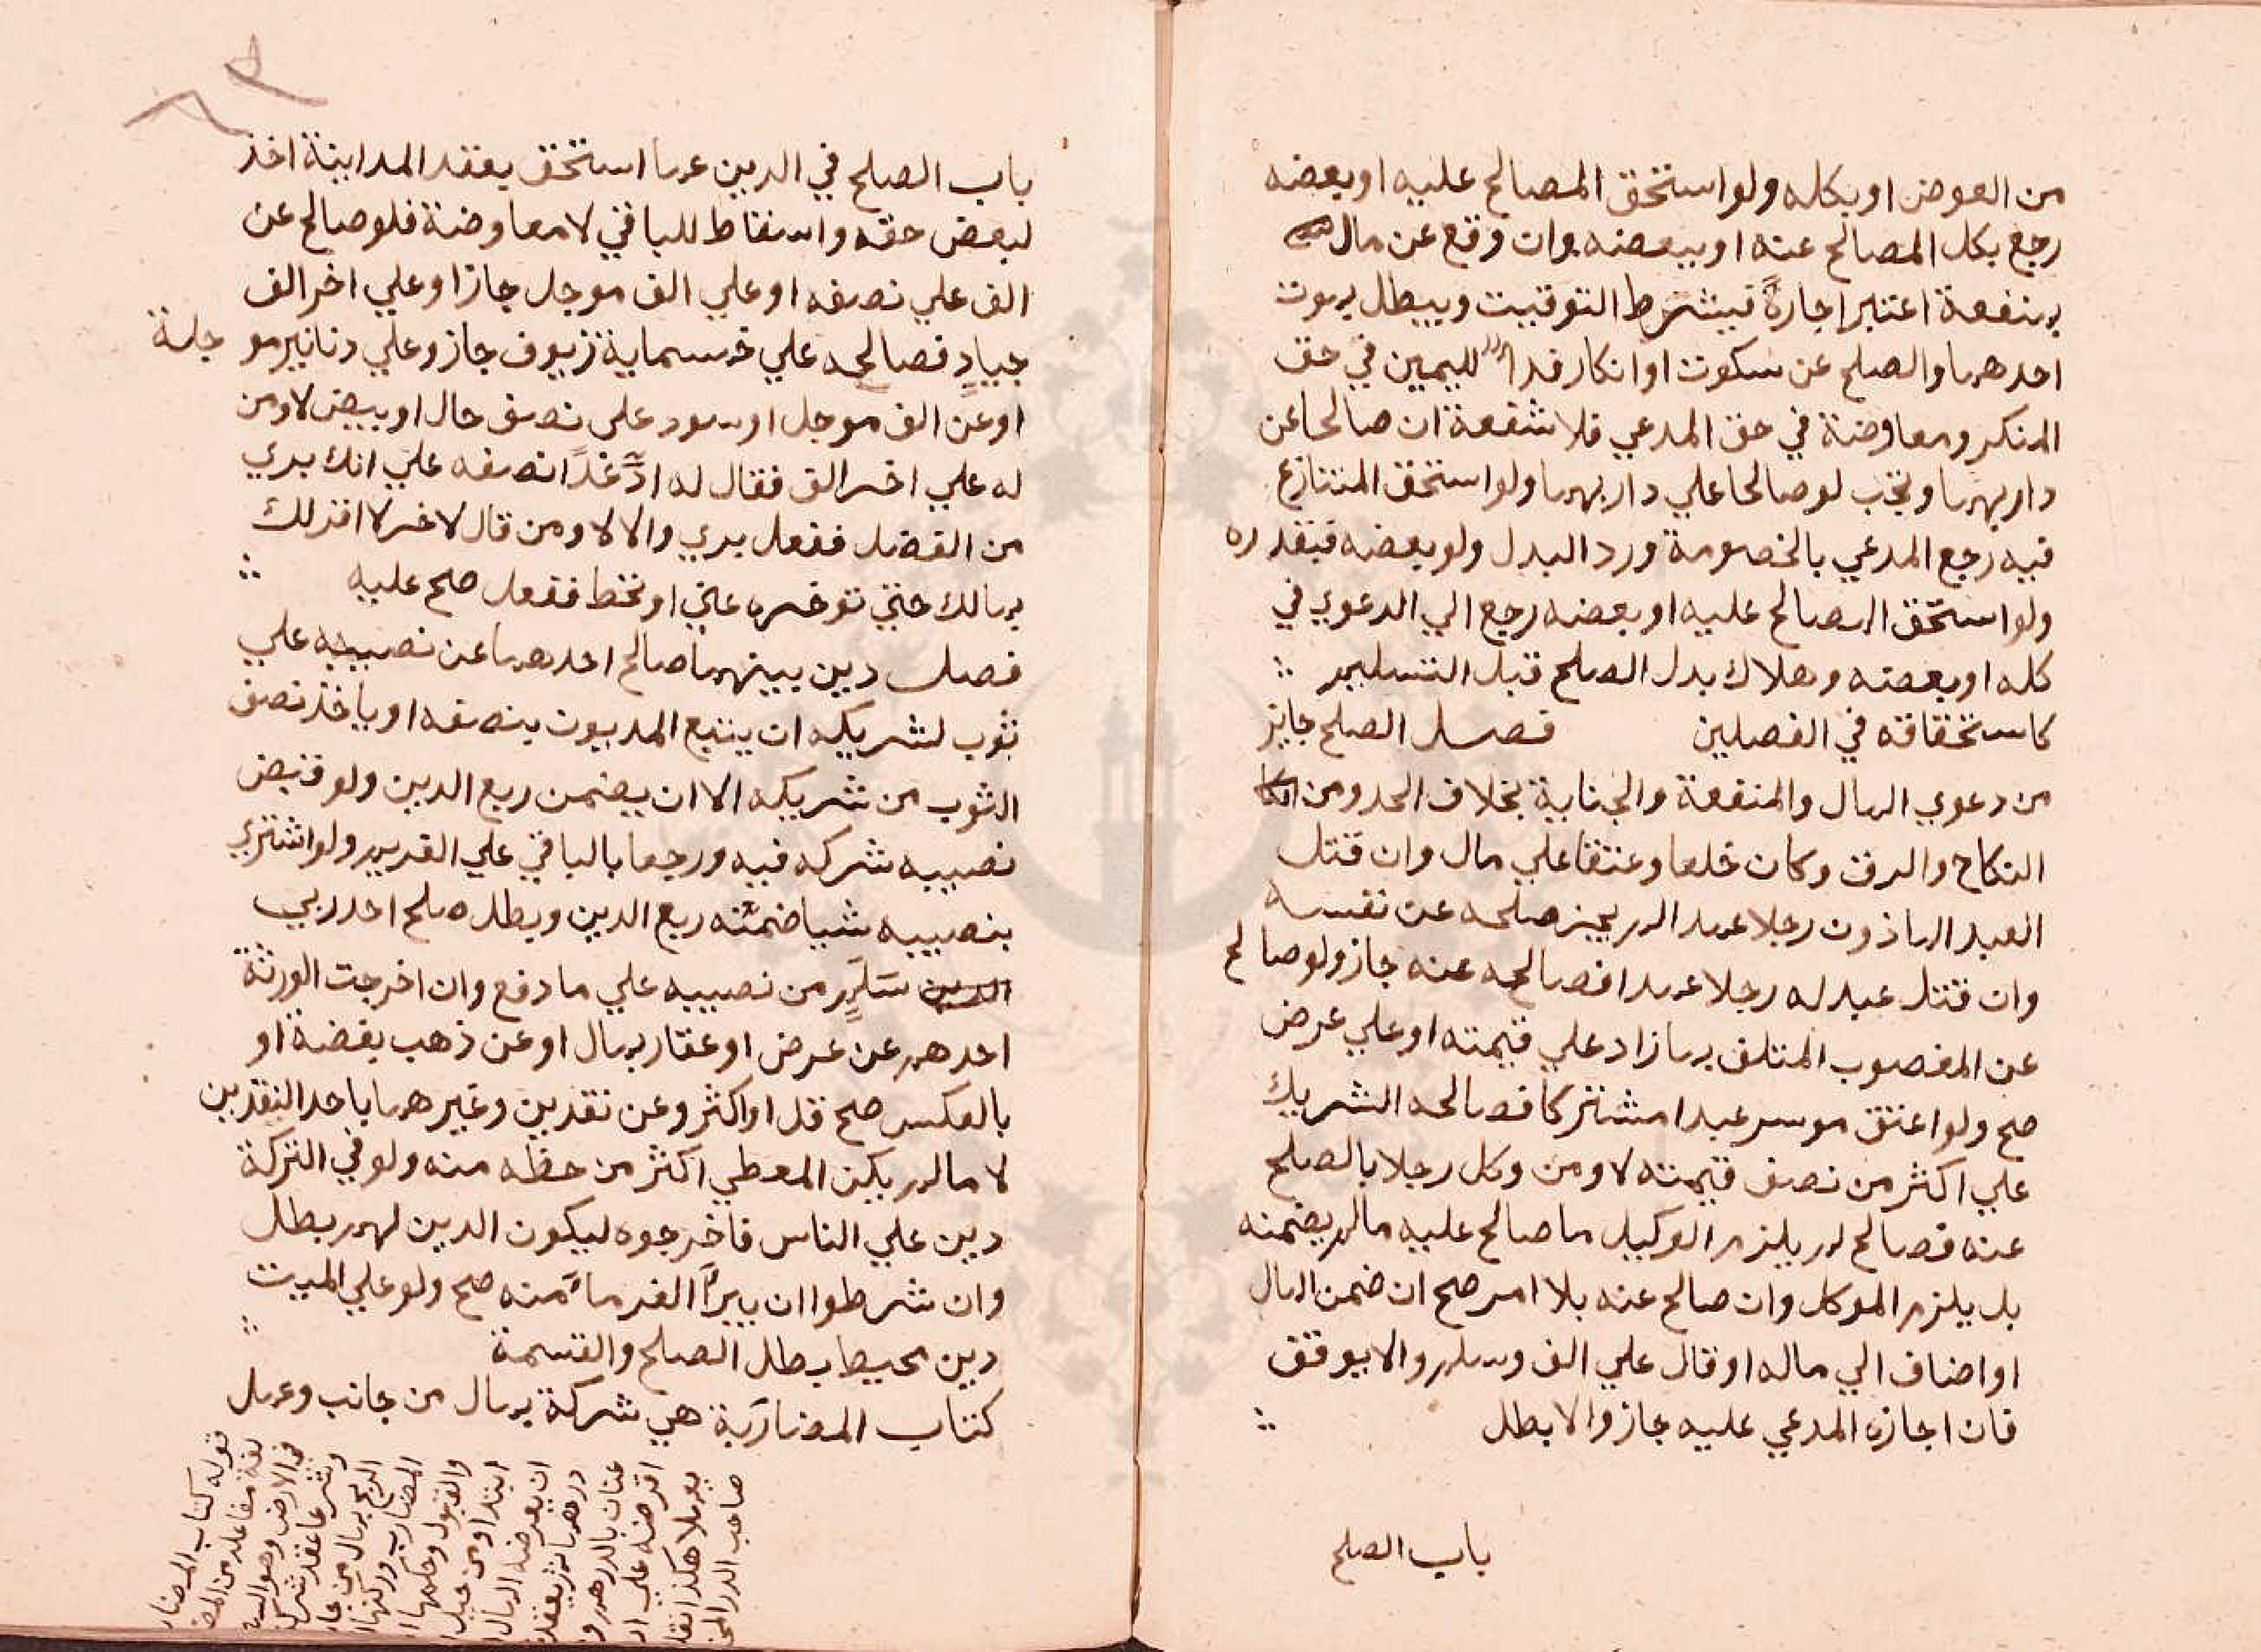 من العوض او بكله ولو استحق المصالح عليه او بعضه
رجع بكل المصالح عنه او ببعضه وان وقع عن مال
بمنفعة اعتبر اجارةً فيشترط التوقيت ويبطل بموت
احدهما والصلح عن سكوت او انكار فداء لليمين في حق
المنكر ومعاوضة في حق المدعي فلا شفعة ان صالحا عن
دار بهما وتجب لو صالحا علي دار بهما ولو استحق المتنازع
فيه رجع المدعي بالخصومة ورد البدل ولو بعضه فبقدره
ولو استحق المصالح عليه او بعضه رجع الي الدعوي في
كله او بعضه وهلاك بدل الصلح قبل التسليم
كاستحقاقه في الفصلين فصل الصلح جايز
من دعوي المال والمنفعة والجناية بخلاف الحد ومن
النكاح والرق وكان خلعا وعتقا علي مال وان قتل
العبد الماذون رجلا عمدا لم يجز صلحه عن نفسه
وان قتل عبد له رجلا عمدا فصالحه عنه جاز ولو صالح
عن المغصوب المتلف بما زاد علي قيمته او علي عرض
صح ولو اعتق موسر عبدا مشتركا فصالحه الشريك
علي اكثر من نصف قيمته لا ومن وكل رجلا بالصلح
عنه فصالح لم يلزم الوكيل ما صالح عليه ما لم يضمنه
بل يلزم الموكل وان صالح عنه بلا امر صح ان ضمن المال
او اضاف الي ماله او قال علي الف وسلم والا يوقف
فان اجازه المدعي عليه جاز والا بطل
باب الصلح
باب الصلح في الدين عما استحق بعقد المداينة اخذ
لبعض حقه واسقاط للباقي لا معاوضة فلو صالح عن
الف علي نصفه او علي الف موجل جاز او علي اخر الف
جياد فصالحه علي خمسماية زيوف جاز وعلي دنانير مو جلة
او عن الف موجل او سود علي نصف حال او بيض لا ومن
له علي اخر الف فقال له ادّ غدًا نصفه علي انك بري
من الفضل ففعل بري والا لا ومن قال لاخر لا اقر لك
بمالك حتي توخره عني او تحط ففعل صح عليه
فصل دين بينهما صالح احدهما عن نصيبه علي
ثوب لشريكه ان يتبع المديون بنصفه او ياخذ نصف
الثوب من شريكه الا ان يضمن ربع الدين ولو قبض
نصيبه شركه فيه ورجعا بالباقي علي الغريم ولو اشتري
بنصيبه شيا ضمنه ربع الدين وبطل صلح احد ربي
سَلَمٍ من نصيبه علي ما دفع وان اخرجت الورثة
احدهم عن عرض او عقار بمال او عن ذهب بفضة او
بالعكس صح قل او اكثر وعن نقدين وغيرهما باحد النقدين
لا ما لم يكن المعطي اكثر من حظه منه ولو في التركة
دين علي الناس فاخرجوه ليكون الدين لهم بطل
وان شرطوا ان يبرأ الغرماء منه صح ولو علي الميت
دين محيط بطل الصلح والقسمة
كتاب المضاربة هي شركة بمال من جانب وعمل
قوله كتاب المضار
في الارض وهو
وشرعا عقد شركة
الربح بمال من جا
المضارب وركنها
والقبول وحكمها